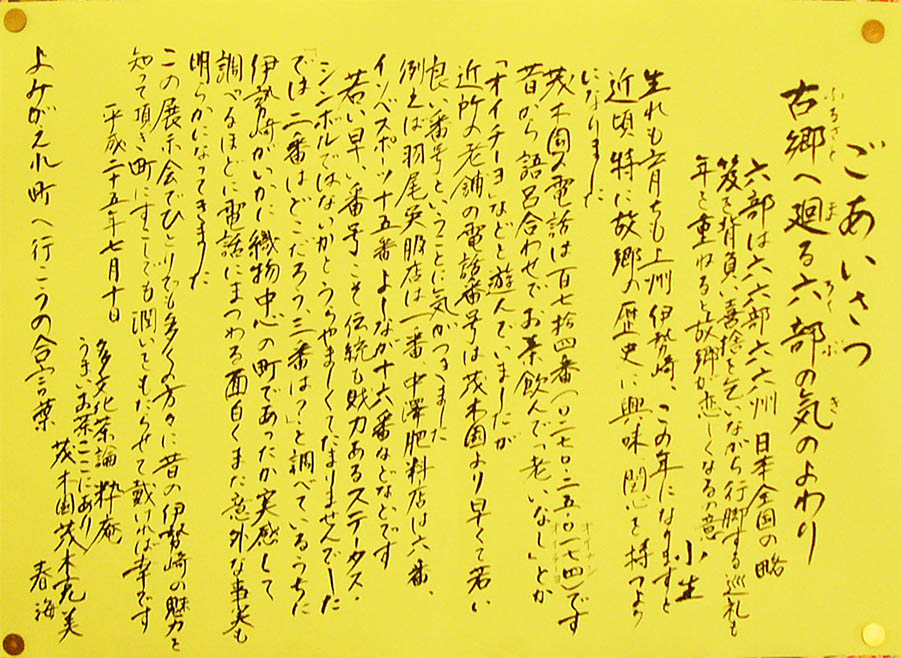 ごあいさつ
古郷へ廻る六部の気のよわり
ふるさと ま ろくぶ き
六部は六六部六六州 日本全国の略
笈を背負い善捨を乞いながら行脚する巡礼も
年と重ねると故郷が恋しくなるの意
小生
生れも育ちも上州伊勢崎、この年になりますと
近頃特に故郷の歴史に興味関心を持つより
になりました
茂木園の電話は百七拾四番(〇二七〇・二五・〇一七四)です
オイナヨ
昔から語呂合わせでお茶飲んで「老いなし」とか
「オイチーヨ」などと遊んでいましたが
近所の老舗の電話番号は茂木園より早くて若い
良い番号ということに気がつきました
例えば羽尾英服店は一番 中澤肥料店は六番、
インベスポーツ十五番よしなが十六番などなどです
若い早い番号こそ伝統も財力あるステータス・
シンボルではないかとうらやましくてたまりませんでした
「では二番はどこだろう、三番は?」と調べているうちに
伊勢崎がいかに織物中心の町であったか実感して
調べるほどに電話にまつわる面白くまた意外な事実も
明らかになってきました
この展示会でひとりでも多くの方々に昔の伊勢崎の魅力を
知って頂き町にすこしでも潤いてもたらせて戴ければ幸です
平成二十五年七月十日
多文化茶論 粋庵
うまいお茶ここにあり
茂木園茂木克美
春海
よみがえれ町へ行こうの合言葉